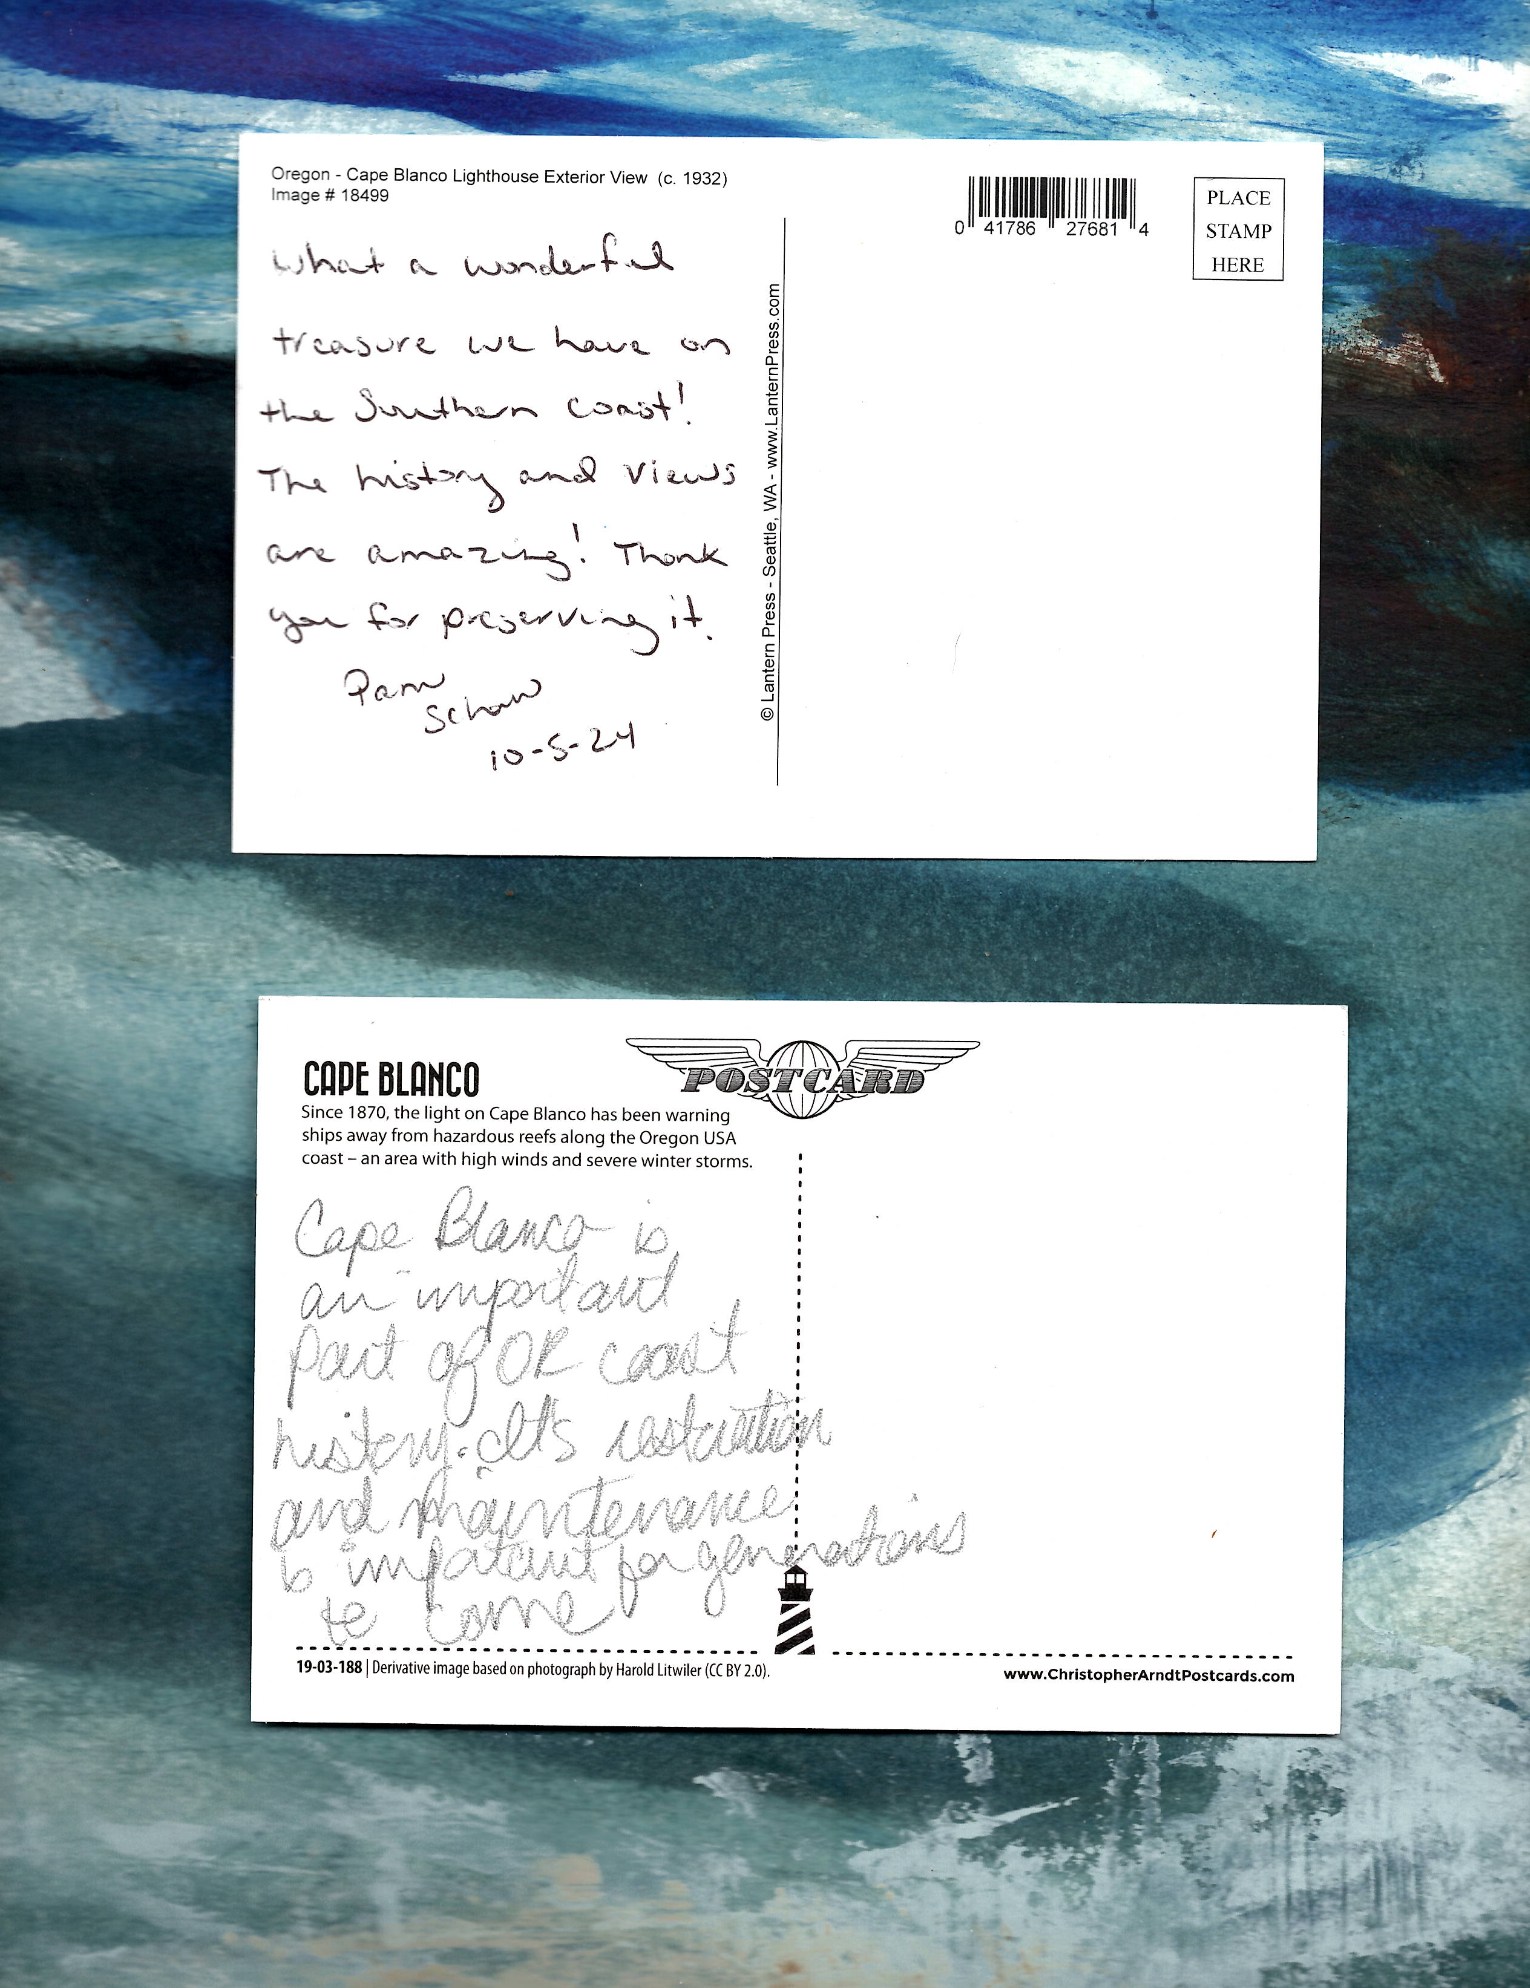 Oregon - Cape Blanco Lighthouse Exterior View (c. 1932)
Image # 18499
0 41786 27681 4
PLACE
STAMP
HERE
What a wonderful
treasure we have on
the Southern coast!
The history and views
are amazing! Thank
you for preserving it.
Pam
Schaw
10-5-24
© Lantern Press - Seattle, WA - www.LanternPress.com
POSTCARD
CAPE BLANCO
Since 1870, the light on Cape Blanco has been warning
ships away from hazardous reefs along the Oregon USA
coast – an area with high winds and severe winter storms.
Cape Blanco is
an important
part of OR coast
history. It's restoration
and maintenance
is important for generations
to come
19-03-188 | Derivative image based on photograph by Harold Litwiler (CC BY 2.0).
www.ChristopherArndtPostcards.com